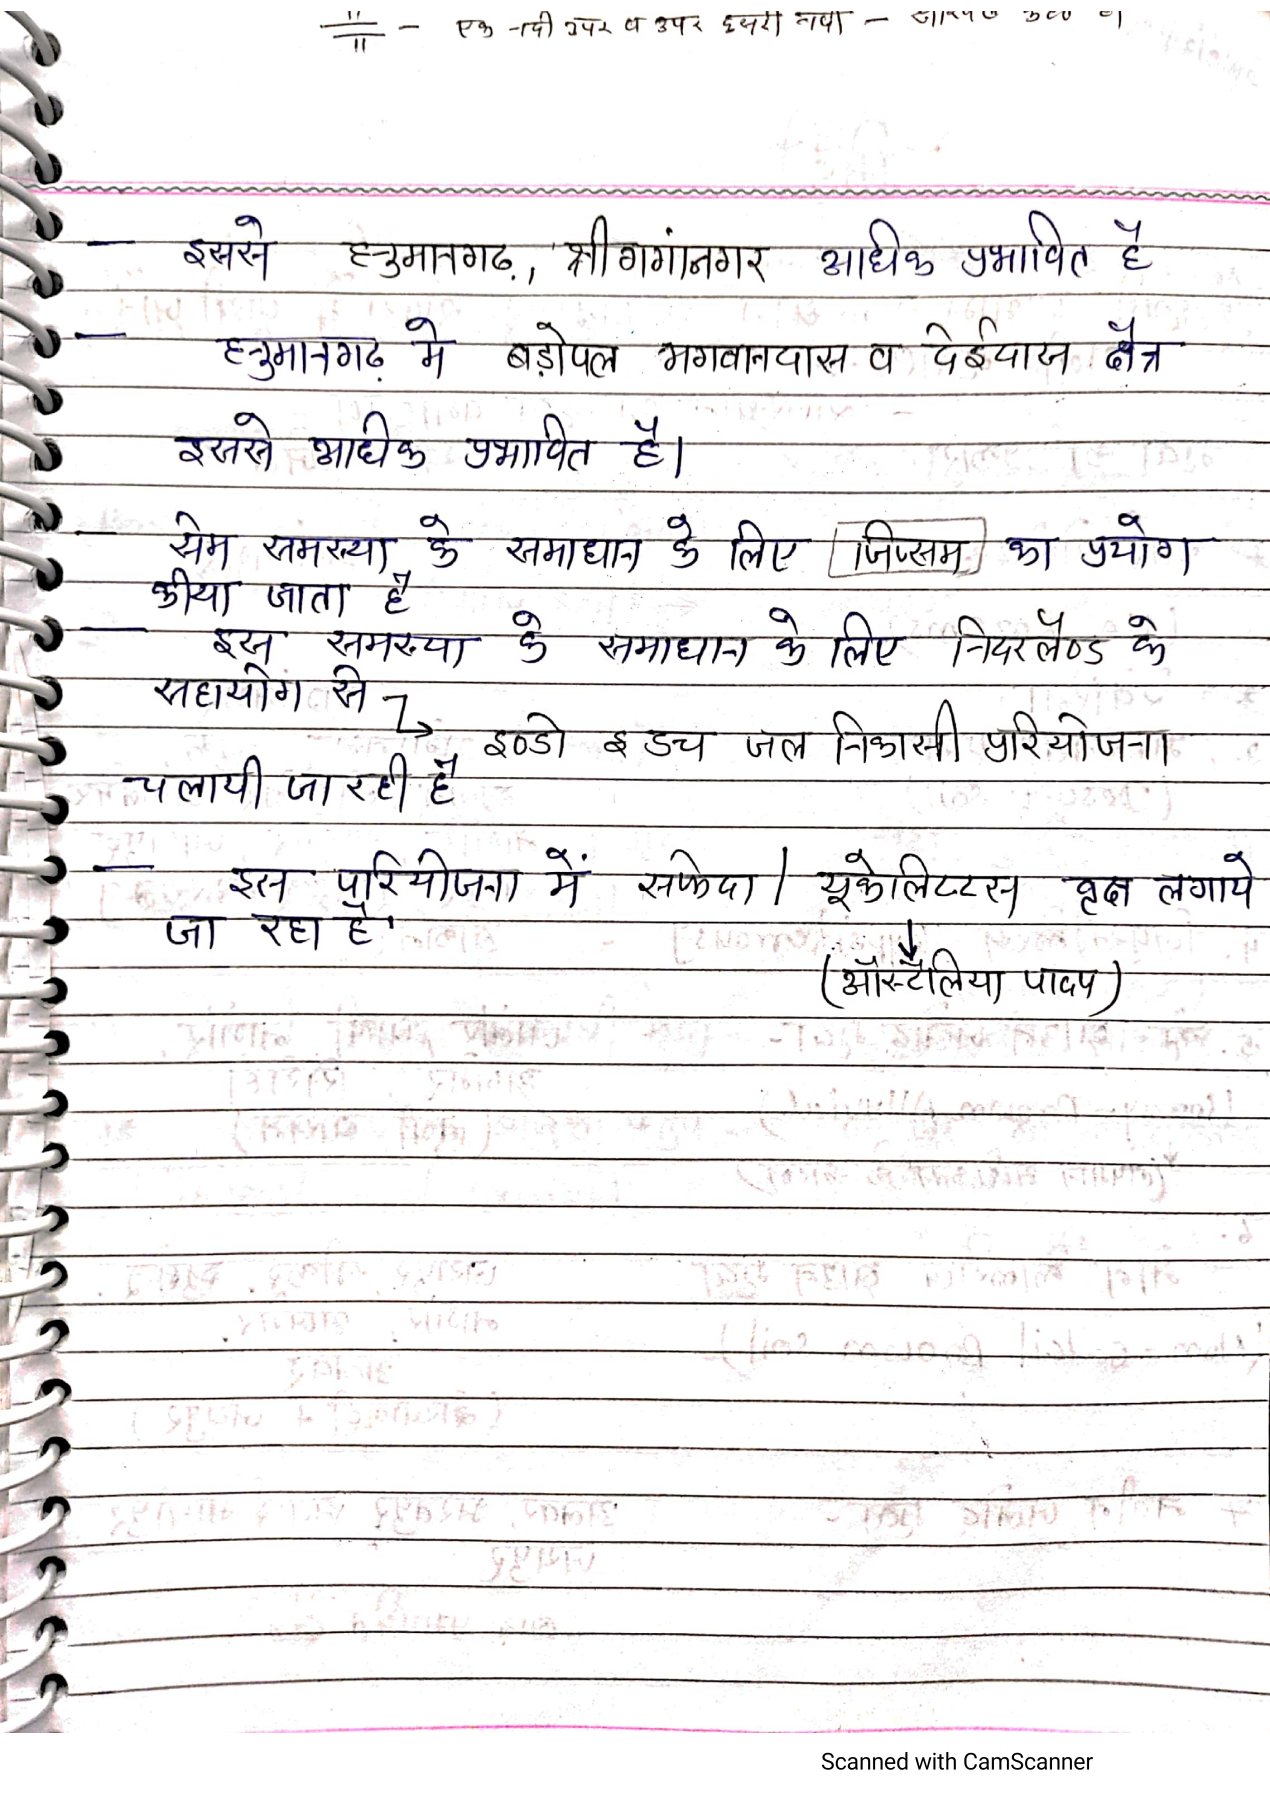 — एक नदी उपर व उपर दुसरी नदी —
— इससे हनुमानगढ़, श्रीगगांनगर अधिक प्रभावित है
— हनुमानगढ़ मे बड़ोपल भगवानदास व देईदास क्षैत्र
इससे अधिक प्रभावित है।
— सेम समस्या के समाधान के लिए जिप्सम का प्रयोग
कीया जाता है
— इस समस्या के समाधान के लिए निदरलैण्ड के
सहयोग से
इण्डो इडच जल निकासी परियोजना
चलायी जा रही है
— इस परियोजना में सफेदा / यूकेलिटटस वृक्ष लगाये
जा रहा है
(ऑस्टैलिया पादप)
Scanned with CamScanner